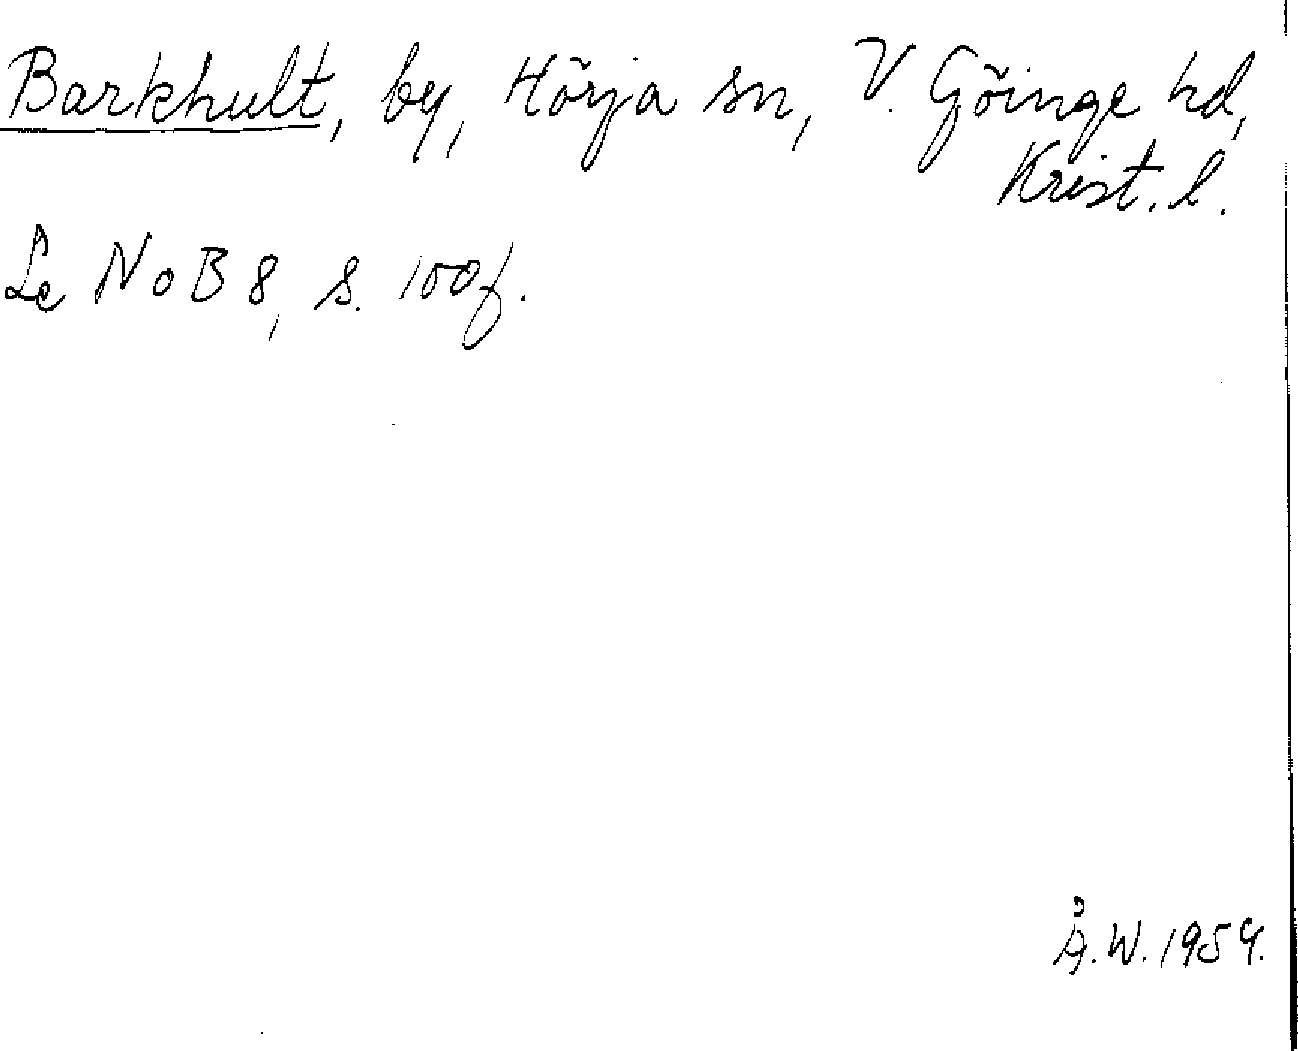 Barkhult, by, Hörja sn, V. Göinge hd,
Krist. l.
Se NoB 8, s. 100f.
Å.W. 1954.